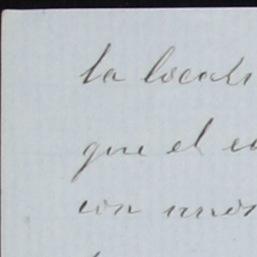 la locali
que el e
con unos